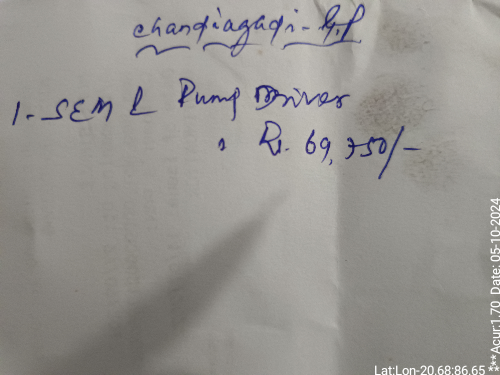 chandiagadi - G.P
1. SEM & Pump Driver
Rs. 69,750/-
Lat:Lon-20.68:86.65
***Acur:1.70 Date: 05-10-2024